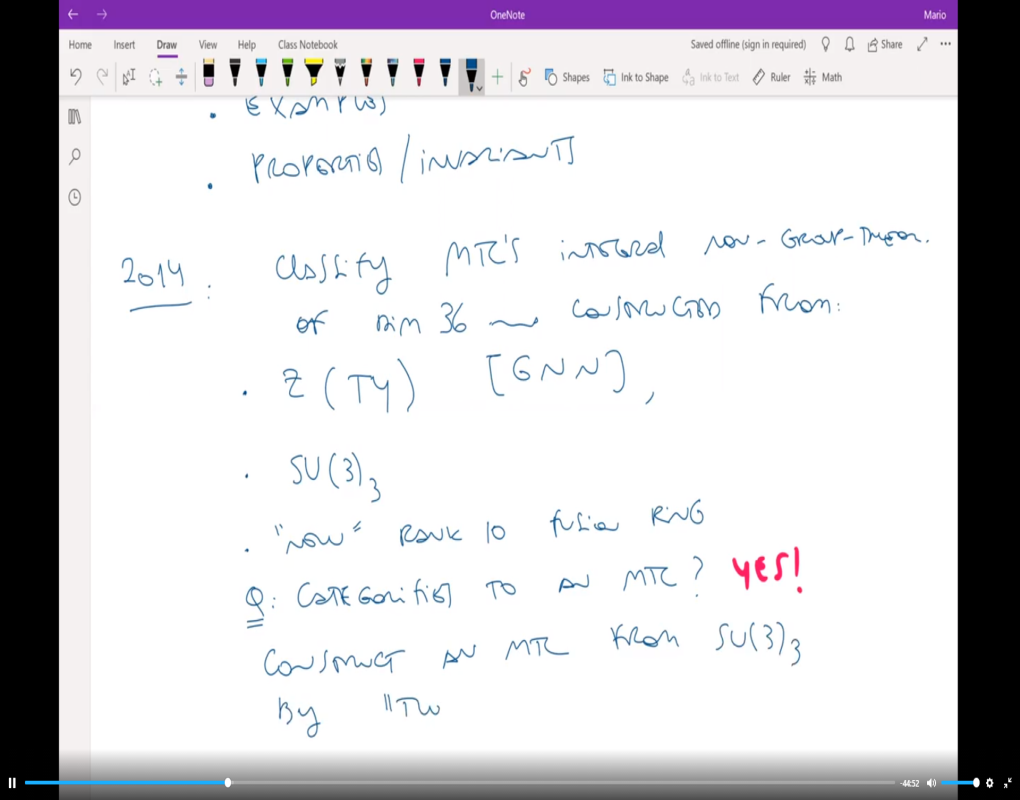 OneNote
Mario
Home Insert Draw View Help Class Notebook
Saved offline (sign in required) Share
Shapes Ink to Shape Ink to Text Ruler Math
• EXAMPLES
• PROPERTIES / INVARIANTS
2014 : Classify MTC's integral non-Group-Theor.
of Dim 36 ~ CONSTRUCTED From:
• Z(TY) [GNN],
• SU(3)3
• "NEW" RANK 10 fusion RING
Q: CATEGORIFIES TO AN MTC? YES!
CONSTRUCT AN MTC FROM SU(3)3
By "TW
-44:52